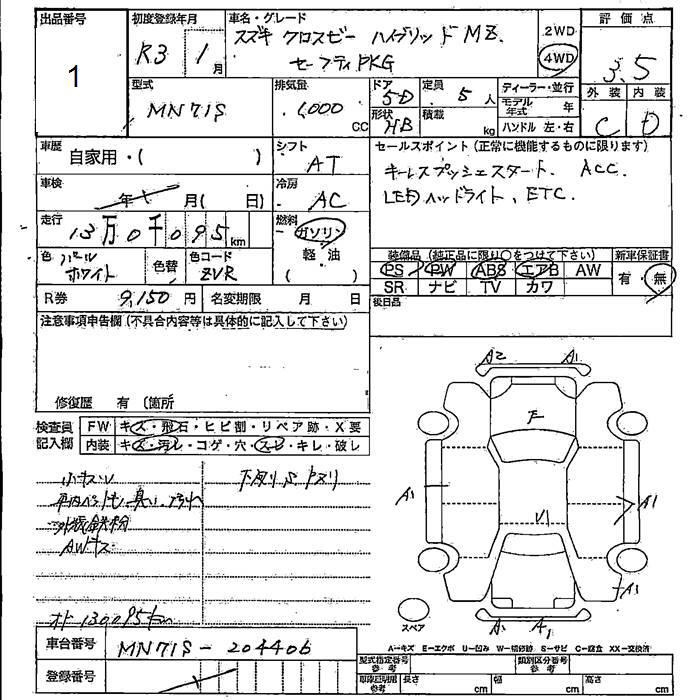 出品番号
1
初度登録年月
R3 1月
車名・グレード
スズキ クロスビー ハイブリッド MZ.
セーフティPKG
2WD
4WD
評価点
3.5
外装 内装
C D
型式
MN71S
排気量
1,000 CC
ドア
5D
形状
HB
定員
5人
積載
kg
ディーラー・並行
モデル年式 年
ハンドル 左・右
車歴
自家用・( )
シフト
AT
セールスポイント(正常に機能するものに限ります)
キーレスプッシュスタート. ACC.
LEDヘッドライト、ETC.
車検
年 月( 日)
冷房
AC
走行
13万0千095km
燃料
ガソリン
軽・油
( )
色 パール
ホワイト
色替
色コード
ZVR
装備品(純正品に限り〇をつけて下さい)
PS PW ABS エアB AW
SR ナビ TV カワ
新車保証書
有・無
R券 9,150円
名変期限 月 日
後日品
注意事項申告欄(不具合内容等は具体的に記入して下さい)
修復歴 有 (箇所
検査員記入欄
FW キズ・飛石・ヒビ割・リペア跡・X要
内装 キズ・汚レ・コゲ・穴・スレ・キレ・破レ
小キズU
下廻り
車内ペットも・臭い・汚れ
外装鉄粉
AWキズ
オド 130095km
車台番号
MN71S-204406
登録番号
A2 A1
F
A1
A1
V1
A1
A1 A1
スペア
A−キズ E−エクボ U−凹み W−補修跡 S−サビ C−腐食 XX−交換済
型式指定番号参考
類別区分番号参考
車庫証明用参考
長さ cm
幅 cm
高さ cm